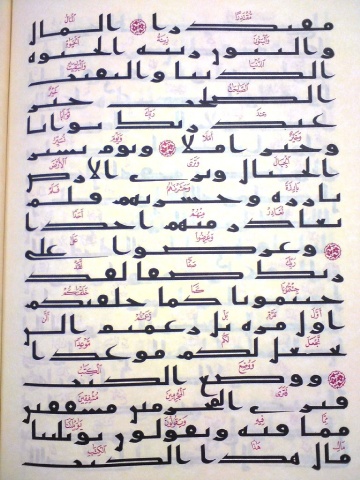 مقتدرا المال
والبنون زينه الحيوه
الدنيا والبقيت
الصلحت خير
عند ربك ثوابا
وخير املا ويوم نسير
الجبال وترى الارض
بارزه وحشرنهم فلم
نغادر منهم احدا
وعرضوا على
ربك صفا لقد
جئتمونا كما خلقنكم
اول مره بل زعمتم الن
نجعل لكم موعدا
ووضع الكتب
فترى المجرمين مشفقين
مما فيه ويقولون يويلتنا
مال هذا الكتب